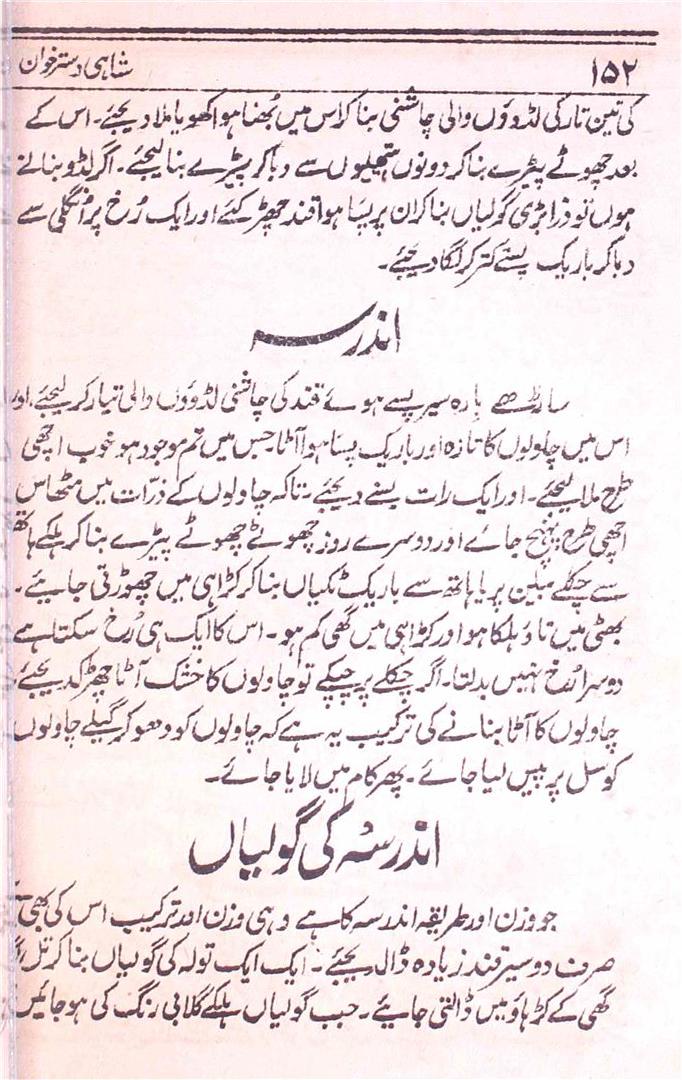 ۱۵۲
شاہی دسترخوان
کی تین تار کی لڈوؤں والی چاشنی بنا کر اس میں بُھنا ہوا کھویا ملا دیجئے۔ اس کے
بعد چھوٹے پیڑے بنا کر دونوں ہتھیلیوں سے دبا کر پیڑے بنا لیجئے۔ اگر لڈو بنانے
ہوں تو ذرا بڑی گولیاں بنا کر ان پر پسا ہوا قند چھڑکیے اور ایک رُخ پر اُنگلی سے
دبا کر باریک پستے کتر کر لگا دیجئے۔
اندرسہ
ساڑھے بارہ سیر پسے ہوئے قند کی چاشنی لڈوؤں والی تیار کر لیجئے، اور
اس میں چاولوں کا تازہ اور باریک پسا ہوا آٹا جس میں نم موجود ہو خوب اچھی
طرح ملا لیجئے۔ اور ایک رات بسنے دیجئے۔ تاکہ چاولوں کے ذرّات میں مٹھاس
اچھی طرح پہنچ جائے اور دوسرے روز چھوٹے چھوٹے پیڑے بنا کر ہلکے ہاتھ
سے چکلے بیلن پر یا ہاتھ سے باریک ٹکیاں بنا کر کڑاہی میں چھوڑتی جایئے۔
بھٹی میں تاؤ ہلکا ہو اور کڑاہی میں گھی کم ہو۔ اس کا ایک ہی رُخ سکتا ہے
دوسرا رُخ نہیں بدلتا۔ اگر چکلے پر چپکے تو چاولوں کا خشک آٹا چھڑک دیجئے
چاولوں کا آٹا بنانے کی ترکیب یہ ہے کہ چاولوں کو دھو کر گیلے چاولوں
کو سل پر پیس لیا جائے۔ پھر کام میں لایا جائے۔
اندرسہ کی گولیاں
جو وزن اور طریقہ اندرسہ کا ہے وہی وزن اور ترکیب اس کی بھی
صرف دو سیر قند زیادہ ڈال لیجئے۔ ایک ایک تولہ کی گولیاں بنا کر تل
گھی کے کڑھاؤ میں ڈالتی جایئے۔ جب گولیاں ہلکے گلابی رنگ کی ہو جائیں